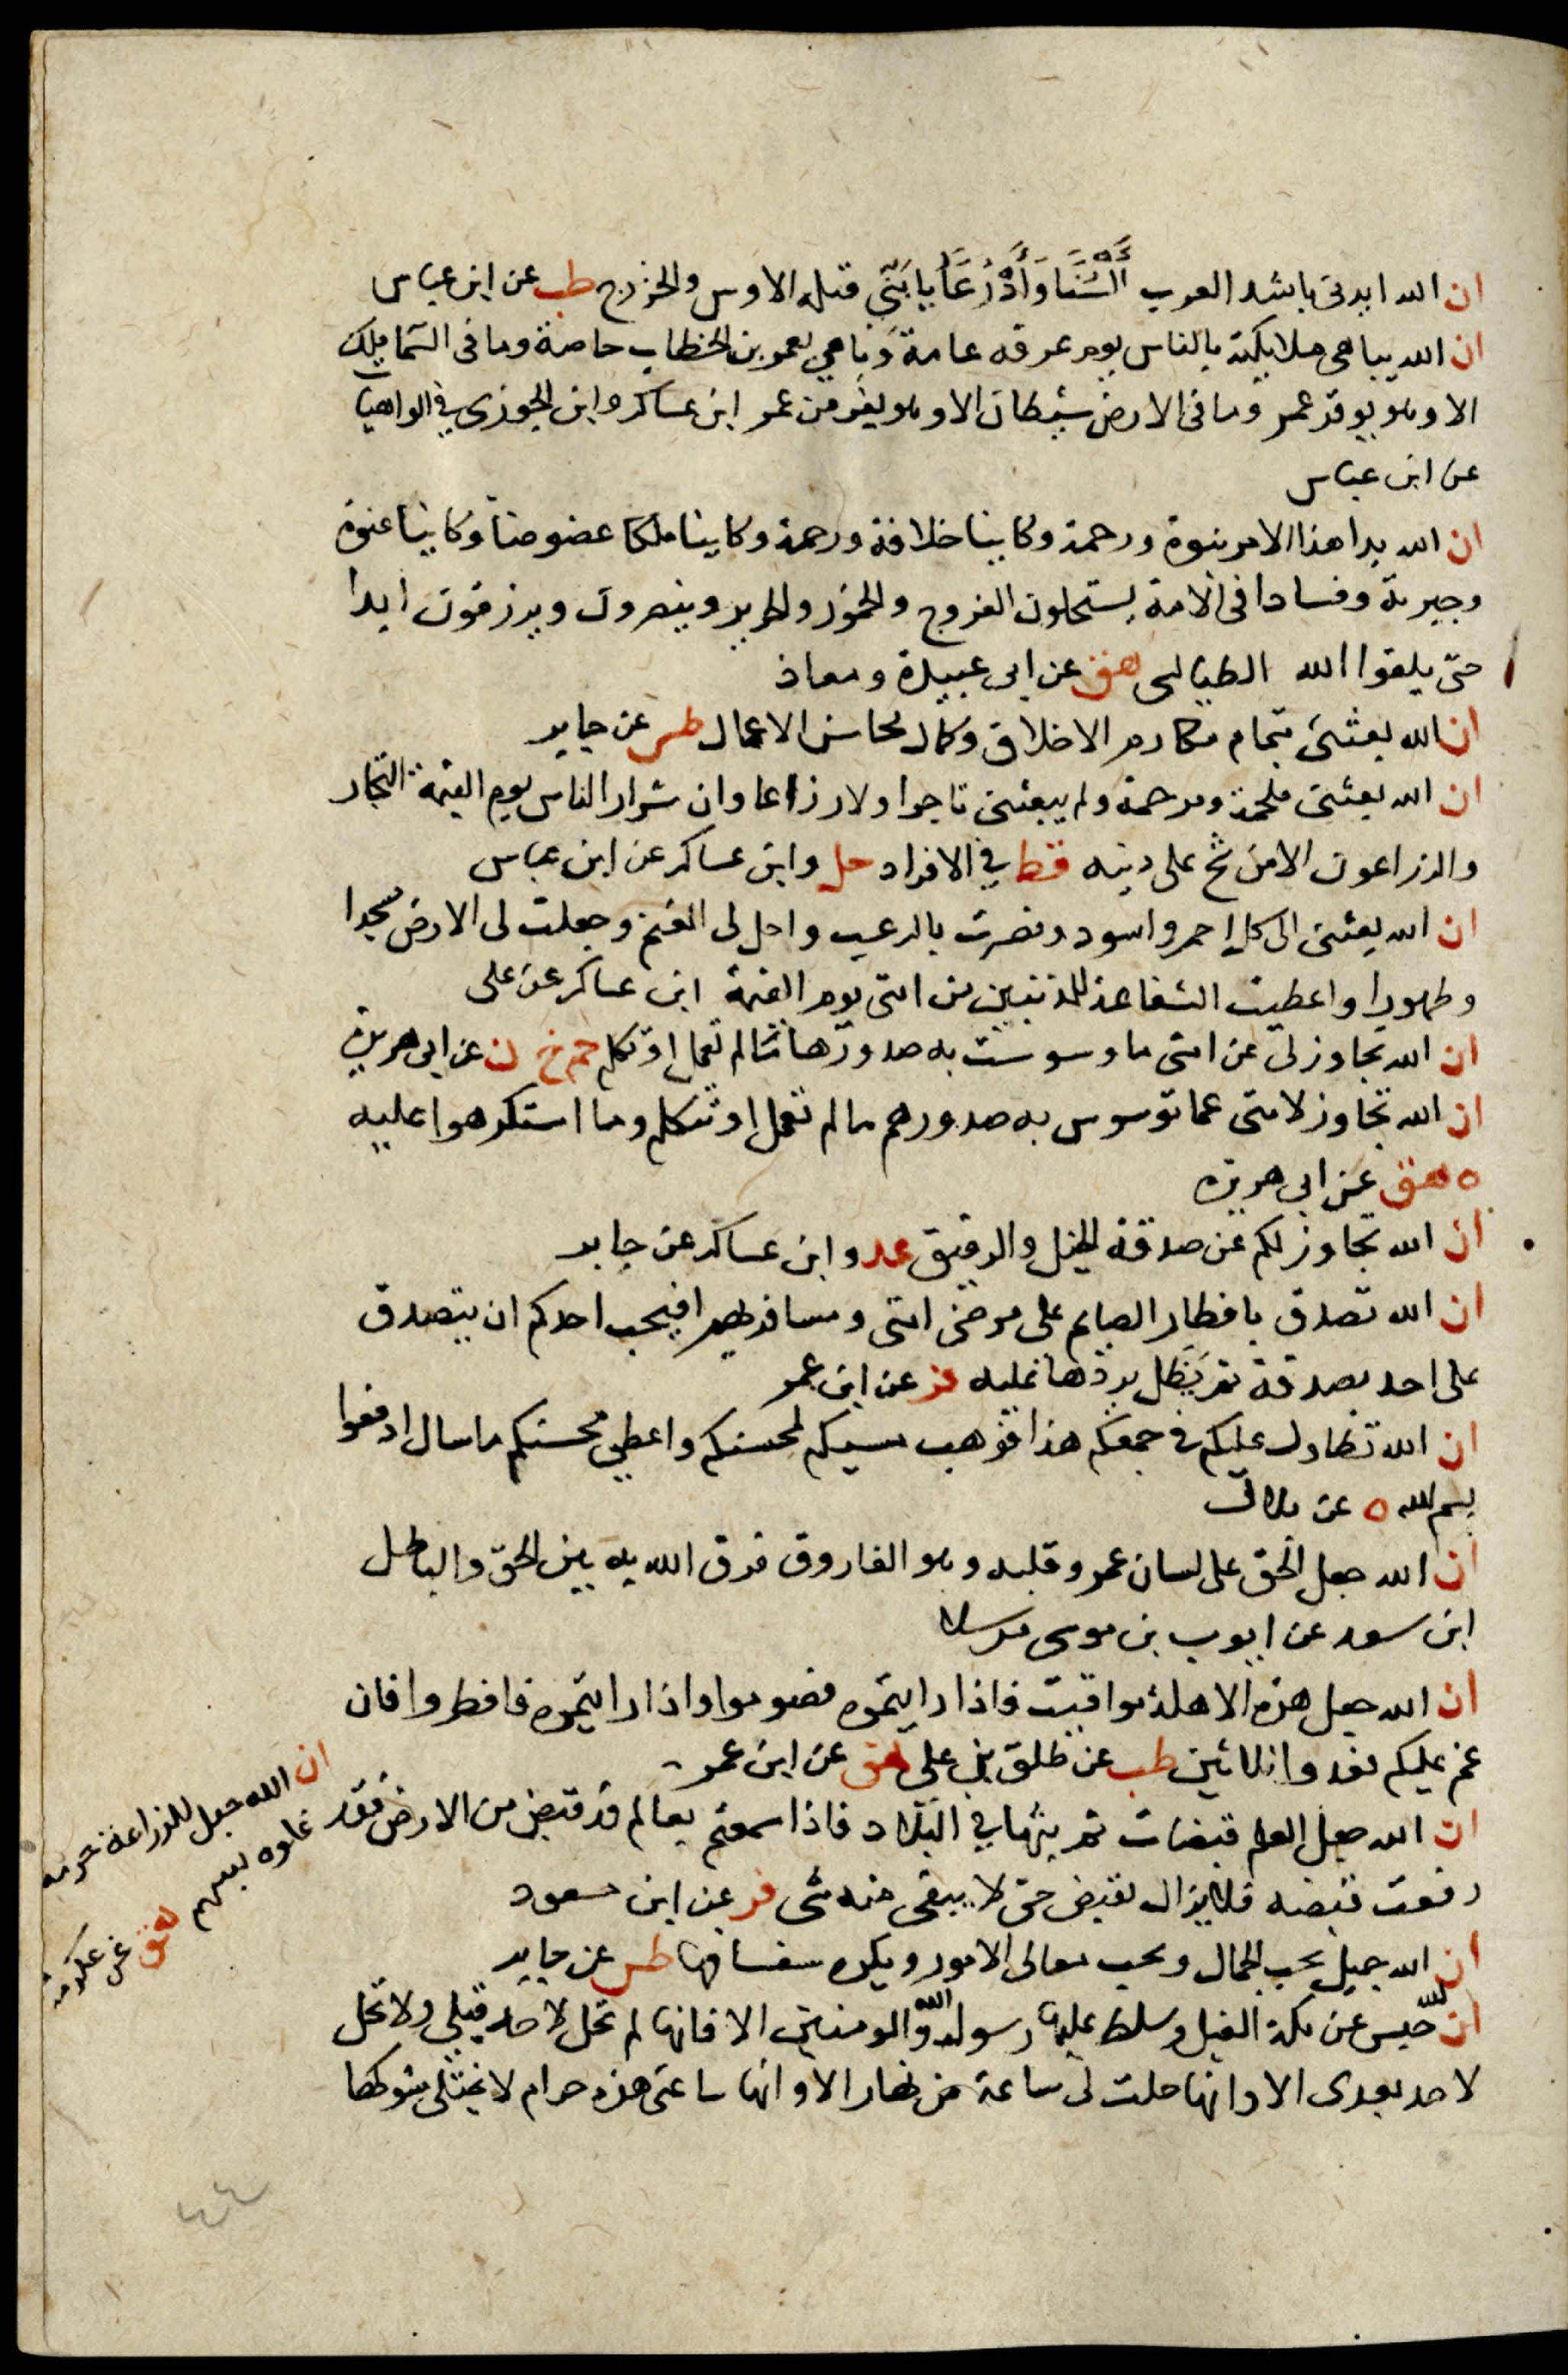 ان الله ايدنى باشد العرب اَلْسُنًا وَاَذْرُعًا بابنَي قيلة الاوس والخزرج طب عن ابن عباس
ان الله يباهى ملايكته بالناس يوم عرفه عامة وباهي بعمر بن الخطاب خاصة وما فى السما ملك
الا وهو يوقر عمر وما فى الارض شيطان الا وهو يفر من عمر ابن عساكر وابن الجوزى في الواهيات
عن ابن عباس
ان الله بدا هذا الامر نبوة ورحمة وكاينا خلافة ورحمة وكاينا ملكا عضوضا وكاينا عنوة
وجبرية وفسادا فى الامة يستحلون الفروج والخمور والحرير وينصرون ويرزقون ابدا
حتى يلقوا الله الطيالسى هق عن ابى عبيدة ومعاذ
ان الله بعثنى بتمام مكارم الاخلاق وكمال محاسن الاعمال طس عن جابر
ان الله بعثنى ملحمة ومرحمة ولم يبعثنى تاجرا ولا زراعا وان شرار الناس يوم القيمة التجار
والزراعون الا من شح على دينه قط في الافراد حل وابن عساكر عن ابن عباس
ان الله بعثنى الى كل احمر واسود ونصرت بالرعب واحل لى المغنم وجعلت لى الارض مسجدا
وطهورا واعطيت الشفاعة للمذنبين من امتى يوم القيمة ابن عساكر عن على
ان الله تجاوز لى عن امتى ما وسوست به صدورها ما لم تعمل او تكلم حم خ ن عن ابى هريرة
ان الله تجاوز لامتى عما توسوس به صدورهم ما لم تعمل او تتكلم وما استكرهوا عليه
ه هق عن ابى هريرة
ان الله تجاوز لكم عن صدقة الخيل والرقيق عد وابن عساكر عن جابر
ان الله تصدق بافطار الصايم على مرضى امتى ومسافريهم افيحب احدكم ان يتصدق
على احد بصدقة ثم يَظَل يردها عليه فر عن ابن عمر
ان الله تطاول عليكم فى جمعكم هذا فوهب مسيكم لمحسنكم واعطى محسنكم ما سال ادفعوا
بسم الله ه عن بلال
ان الله جعل الحق على لسان عمر وقلبه وهو الفاروق فرق الله به بين الحق والباطل
ابن سعد عن ايوب بن موسى مرسلا
ان الله جعل هذه الاهلة مواقيت فاذا رايتموه فصوموا واذا رايتموه فافطروا فان
غم عليكم فعدوا ثلاثين طب عن طلق بن على هق عن ابن عمر
ان الله جعل العلم قبضات ثم بثها في البلاد فاذا سمعتم بعالم قد قبض من الارض فقد
رفعت قبضه فلا يزال يقبض حتى لا يبقى منه شى فر عن ابن مسعود
ان الله جميل يحب الجمال ويحب معالى الامور ويكره سفسافها طس عن جابر
ان الله حبس عن مكة الفيل وسلط عليها رسول الله والمومنين الا فانها لم تحل لاحد قبلى ولا تحل
لاحد بعدى الا وانها حلت لى ساعة من نهار الا وانها ساعتى هذه حرام لا يختلى شوكها
ان الله جعل للزراعة حرمة
غلوه بسهم هق عن عكرمة